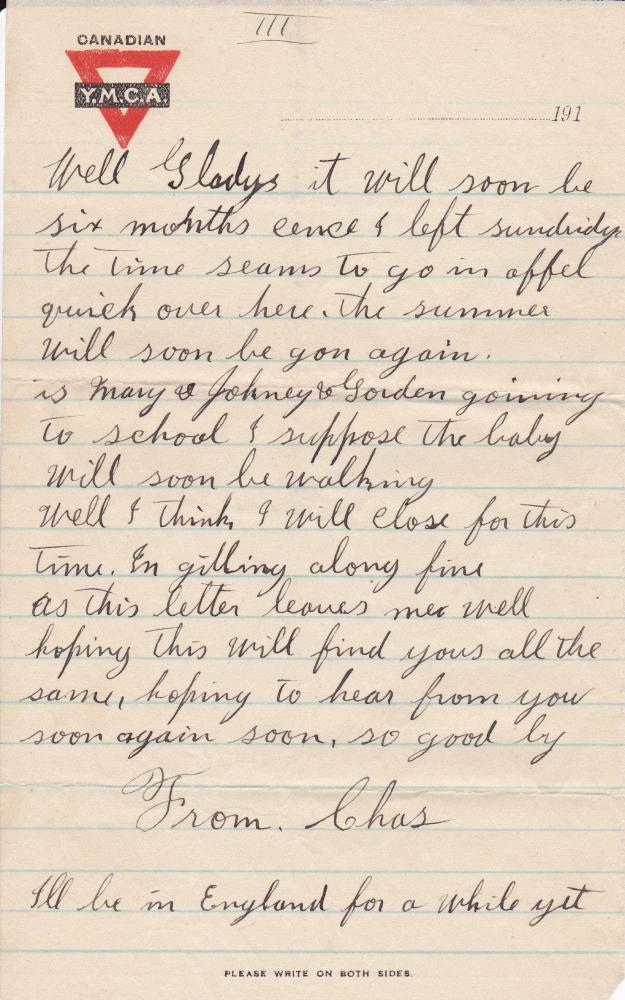 III
CANADIAN
Y.M.C.A.
191
Well Gladys it will soon be
six months cence I left sundridge
the time seams to go in offel
quick over here. the summer
will soon be gon again.
is Mary & Johney & Gorden goining
to school I suppose the baby
will soon be walking
Well I think I will close for this
time. Im gitting along fine
as this letter leaves me well
hoping this will find yous all the
same, hoping to hear from you
soon again soon, so good by
From. Chas
Ill be in England for a while yet
PLEASE WRITE ON BOTH SIDES.